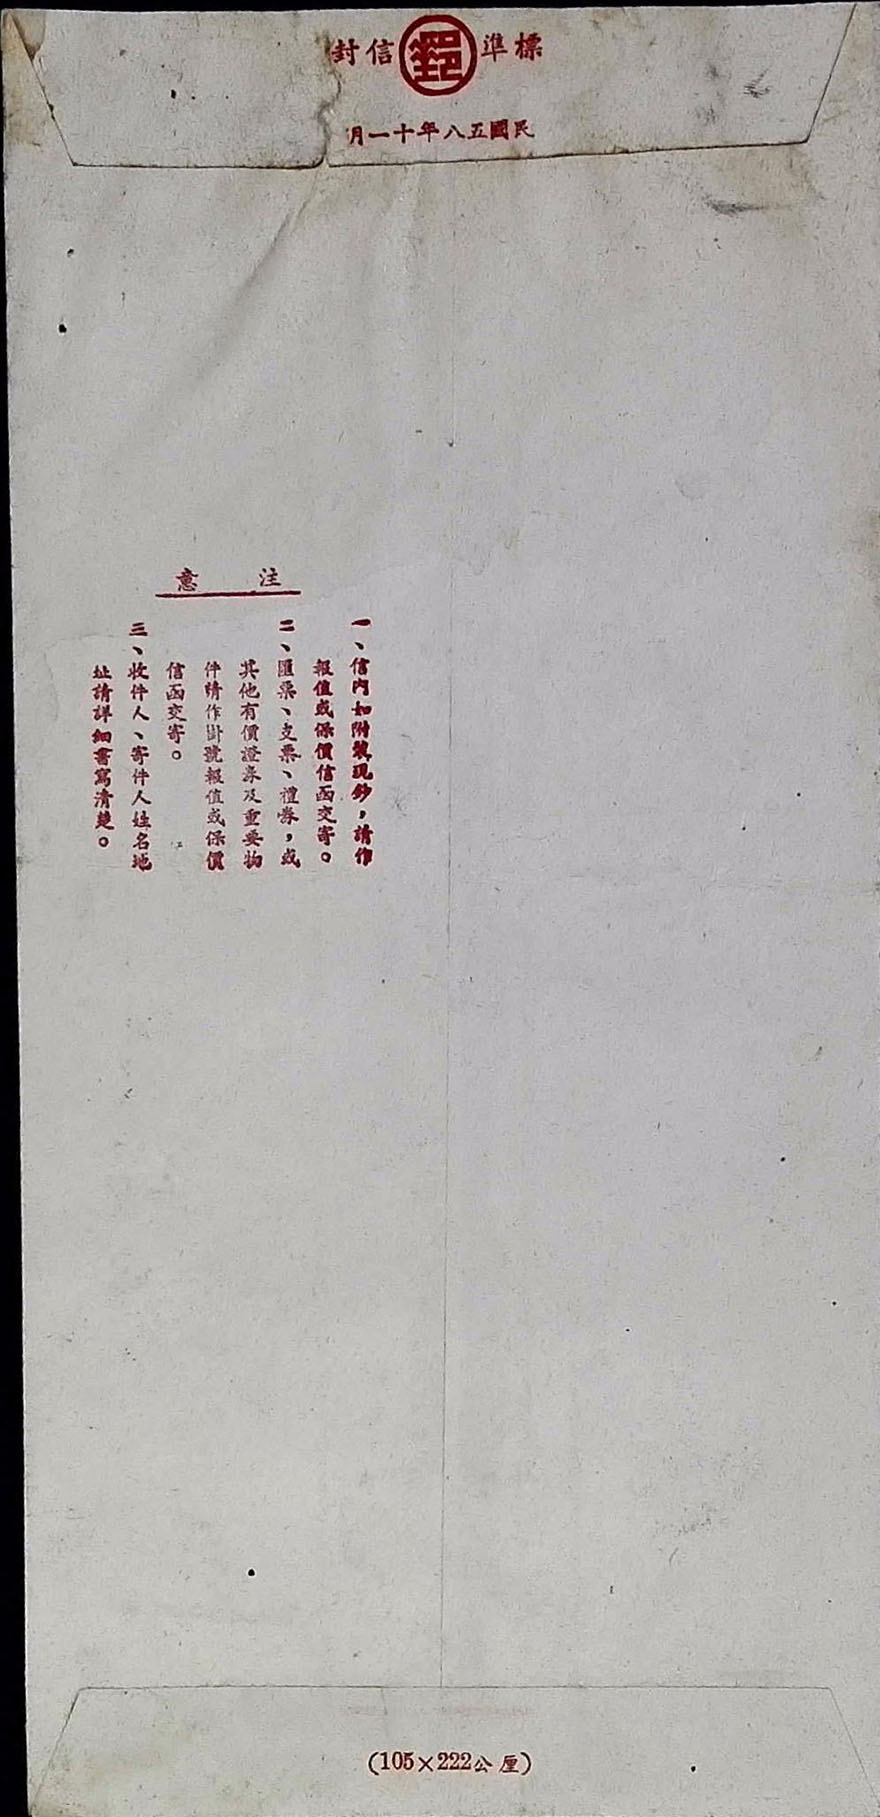 標準郵信封
民國五八年十一月
注意
一、信內如附裝現鈔，請作
報值或保價信函交寄。
二、匯票、支票、禮券，或
其他有價證券及重要物
件請作掛號報值或保價
信函交寄。
三、收件人、寄件人姓名地
址請詳細書寫清楚。
(105×222公厘)